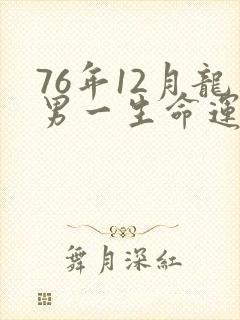 76年12月龍
男一生命運
舞月深紅